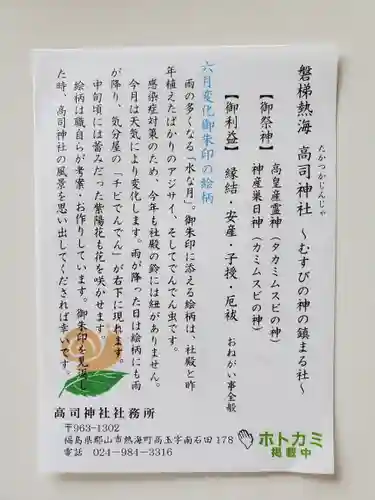 磐梯熱海 高司神社 ~むすびの神の鎮まる社~
たかつかじんじゃ
【御祭神】 高皇産霊神（タカミムスビの神）
神産巣日神（カミムスビの神）
【御利益】 縁結・安産・子授・厄祓 おねがい事全般
六月変化御朱印の絵柄
雨の多くなる「水な月」。御朱印に添える絵柄は、社殿と昨
年植えたばかりのアジサイ、そしてでんでん虫です。
感染症対策のため、今年も社殿の鈴には紐がありません。
今月は天気により変化します。雨が降った日は絵柄にも雨
が降り、気分屋の「チビでんでん」が右下に現れます。
中旬頃には蕾みだった紫陽花も花を咲かせます。
絵柄は職自らが考案・お作りしています。御朱印を見返し
た時、高司神社の風景を思い出してくだされば幸いです。
高司神社社務所
〒963-1302
福島県郡山市熱海町高玉字南石田178
電話 024-984-3316
ホトカミ
掲載中